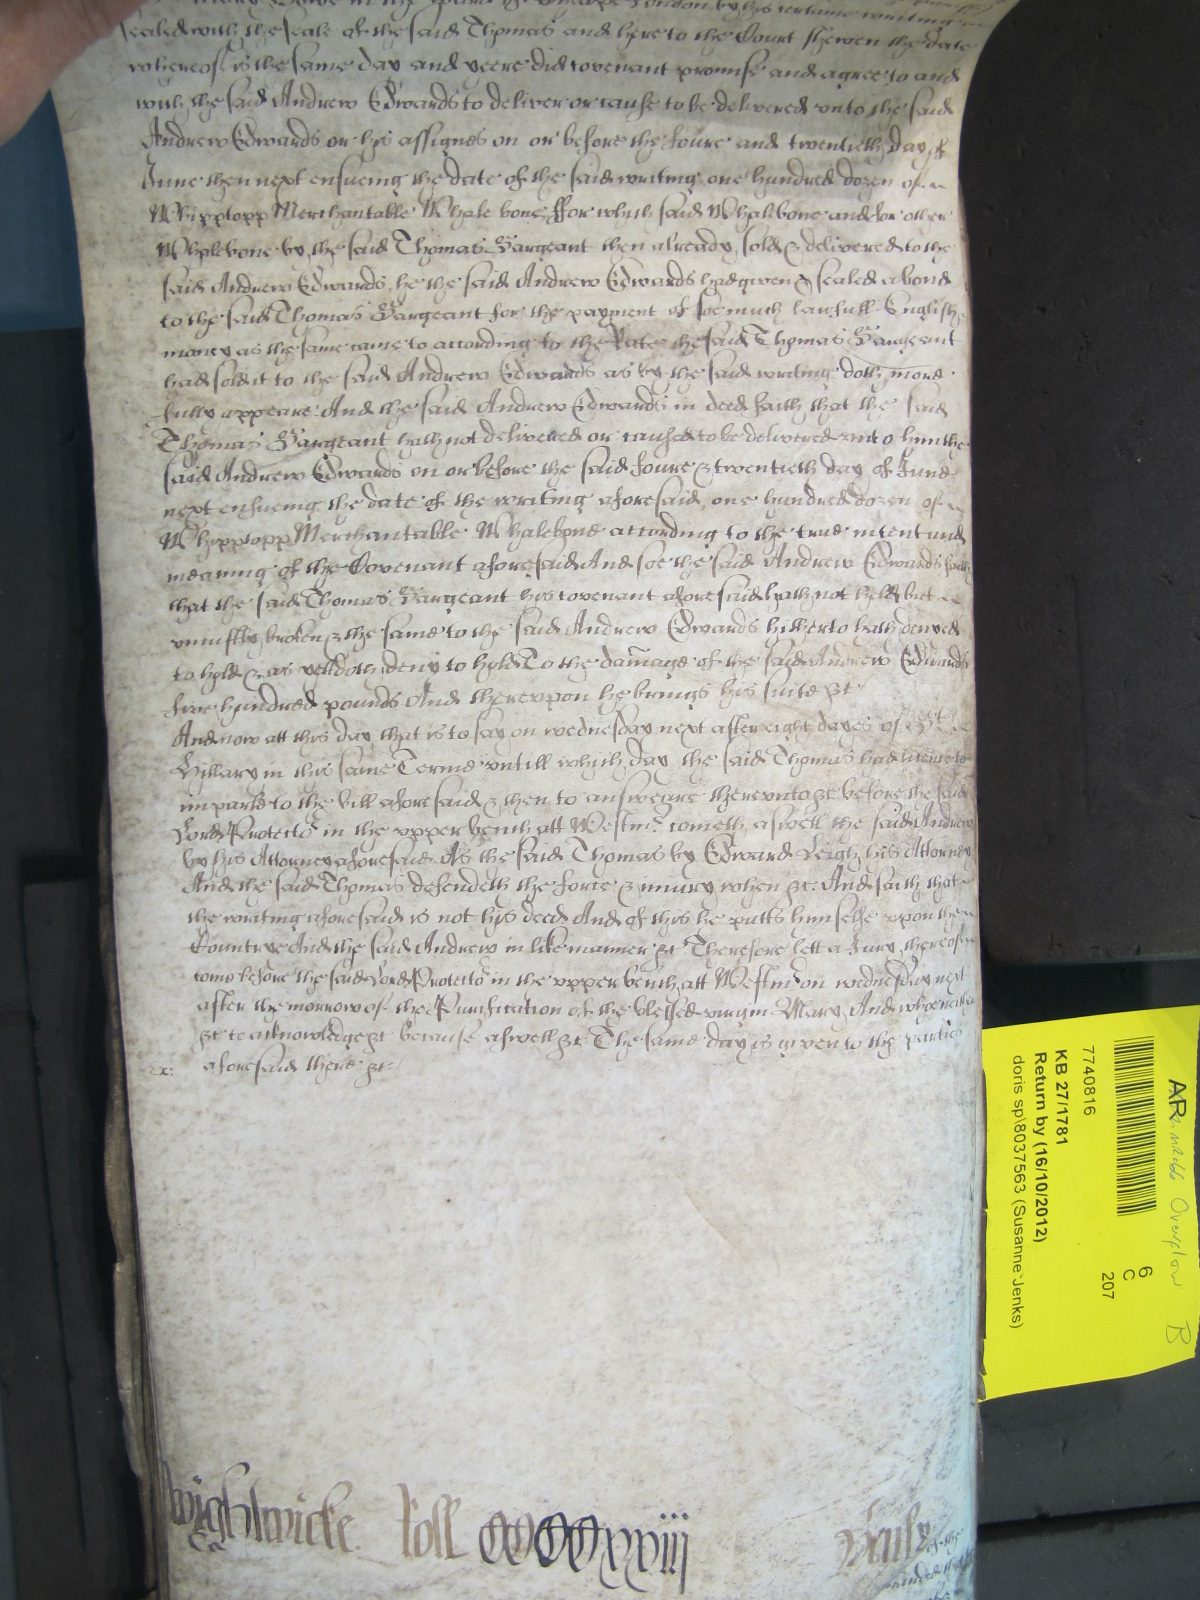 sealed with the seale of the said Thomas and here to the Court shewen the date
whereof is the same day and yeere did covenant promise and agree to and
with the said Andrew Edwards to deliver or cause to be delivered vnto the said
Andrew Edwards or his assignes on or before the foure and twentieth day of
June then next ensueing the date of the said writing one hundred dozen of
Whipptopp Merchantable Whale bone, ffor which said Whalebone and for other
Whalebone by the said Thomas Sargeant then already sold & delivered to the
said Andrew Edwards, he the said Andrew Edwards had given & sealed a bond
to the said Thomas Sargeant for the payment of soe much lawfull English
money as the same came to according to the Rate the said Thomas Sargeant
had sold it to the said Andrew Edwards as by the said writing doth more
fully appeare And the said Andrew Edwards in deed saith that the said
Thomas Sargeant hath not delivered or caused to be delivered vnto him the
said Andrew Edwards on or before the said foure & twentieth day of June
next ensueing the date of the writing aforesaid, one hundred dozen of
Whipptopp Merchantable Whalebone according to the true intent and
meaning of the Covenant aforesaid And soe the said Andrew Edwards saith
that the said Thomas Sargeant his covenant aforesaid hath not held but
vniustly broken & the same to the said Andrew Edwards hitherto hath denyed
to hold & as yett doth deny to hold To the damage of the said Andrew Edwards
hundred pounds And therevpon he brings his suite &c
And now att this day that is to say on wednesday next after eight dayes of St
Hillary in this same Terme vntill which day the said Thomas had licence to
imparle to the bill aforesaid & then to answeare therevnto &c before the said
Lord Protector in the vpper bench att Westmr cometh aswell the said Andrew
by his Attorney aforesaid As the said Thomas by Edward Leigh his Attorney
And the said Thomas defendeth the force & iniury when &c And saith that
the writing aforesaid is not his deed And of this he putts himselfe vpon the
Country And the said Andrew in like manner &c Therefore lett a Jury thereof
come before the said Lord Protector in the vpper bench att Westmr on wednesday next
after the morrow of the Purification of the blessed virgin Mary And who neither
&c to acknowledge &c because aswell &c The same day is given to the parties
aforesaid there &c
Wightwicke Roll CCCCxxiij
7740816
KB 27/1781
Return by (16/10/2012)
doris sp\8037563 (Susanne Jenks)
AR
Overflow B
6
C
207